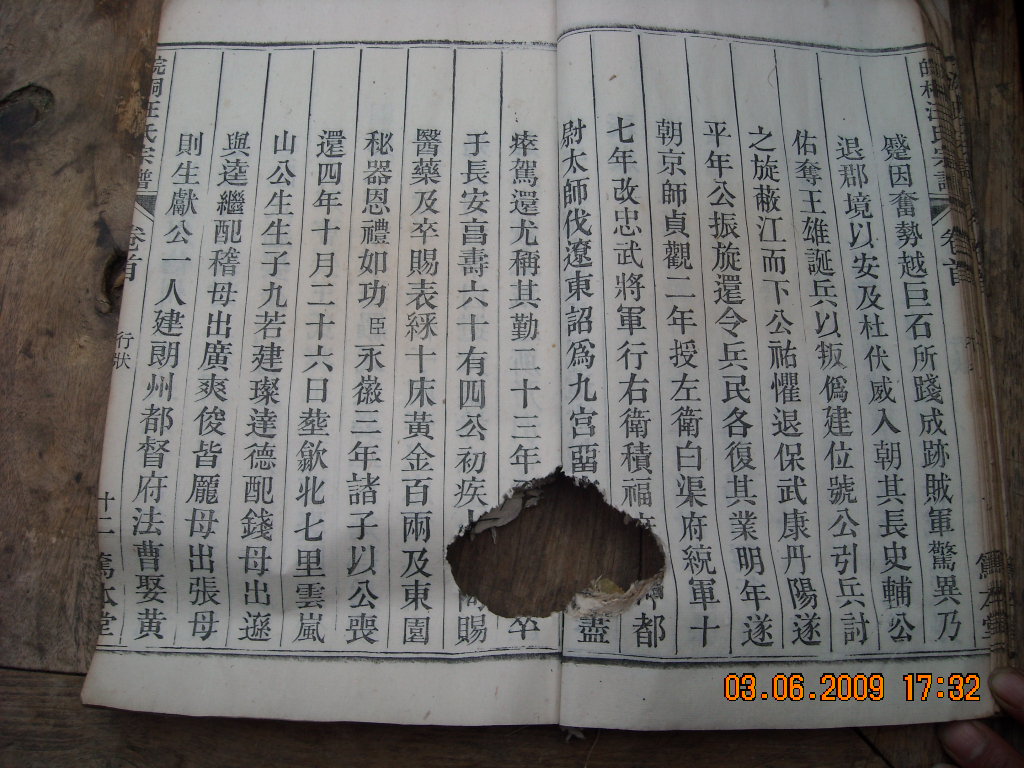 蹙因奮勢越巨石所踐成跡賊軍驚異乃
退郡境以安及杜伏威入朝其長史輔公
佑奪王雄誕兵以叛僞建位號公引兵討
之旋蔽江而下公祐懼退保武康丹陽遂
平年公振旋還令兵民各復其業明年遂
朝京師貞觀二年授左衛白渠府統軍十
七年改忠武將軍行右衛積福都
尉太師伐遼東詔爲九宮畱盡
瘁駕還尤稱其勤二十三年卒
于長安昌壽六十有四公初疾賜
醫藥及卒賜表綵十床黃金百兩及東園
秘器恩禮如功臣永徽三年諸子以公喪
還四年十月二十六日塟歙北七里雲嵐
山公生生子九若建璨達德配錢母出遜
與逵繼配稽母出廣爽俊皆龎母出張母
則生獻公一人建朗州都督府法曹娶黃
皖桐汪氏宗譜
卷首
行狀
十二
篤本堂
03.06.2009 17:32